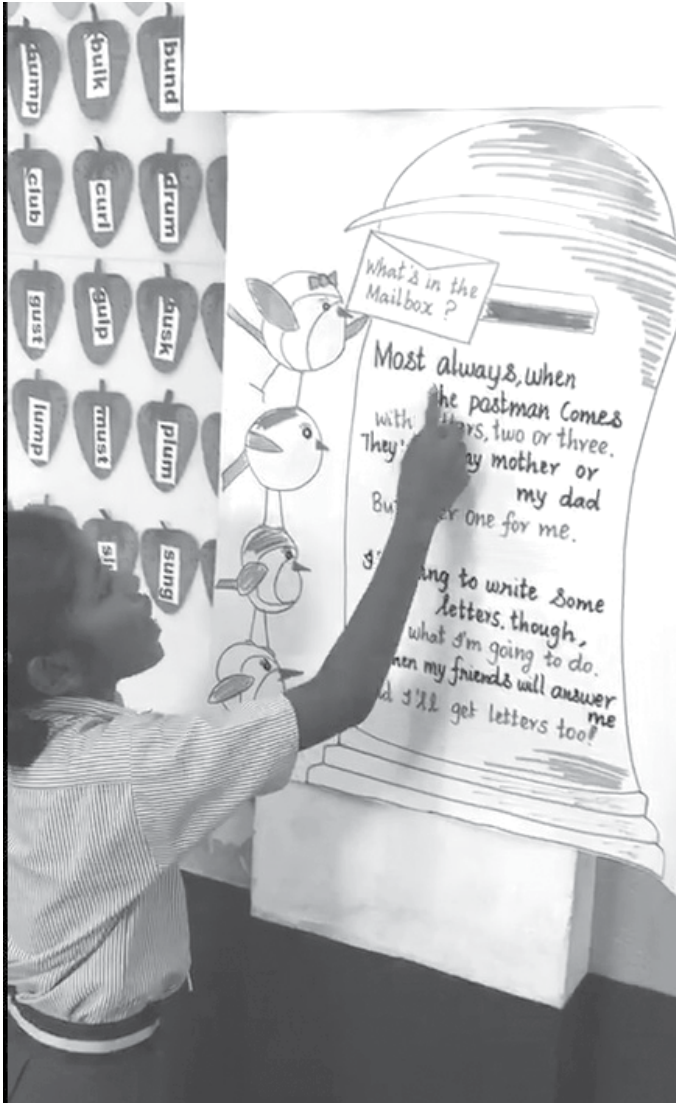 bulk
bund
club
curl
drum
gust
gulp
lump
must
plum
sung
What's in the
Mailbox ?
Most always, when
the postman Comes
with letters, two or three.
They my mother or
my dad
But one for me.
to write Some
letters, though,
what I'm going to do.
my friends will answer
me
I'll get letters too!